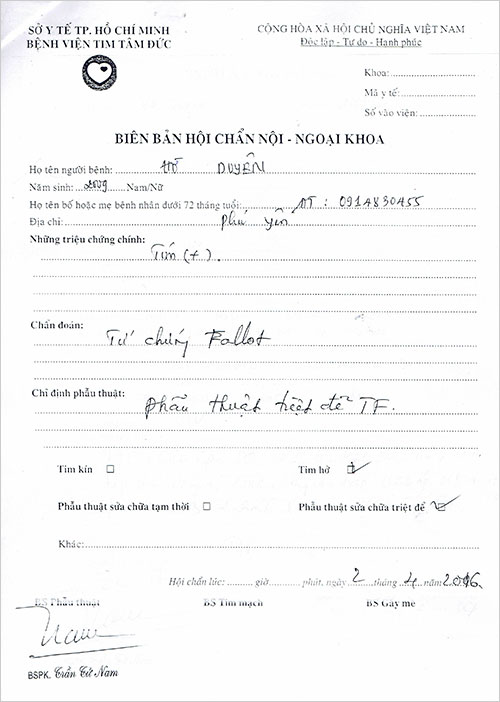 SỞ Y TẾ TP. HỒ CHÍ MINH
BỆNH VIỆN TIM TÂM ĐỨC
CỘNG HÒA XÃ HỘI CHỦ NGHĨA VIỆT NAM
Độc lập - Tự do - Hạnh phúc
Khoa:
Mã y tế:
Số vào viện:
BIÊN BẢN HỘI CHẨN NỘI - NGOẠI KHOA
Họ tên người bệnh: DUYÊN
Năm sinh: 2009 Nam/Nữ
Họ tên bố hoặc mẹ bệnh nhân dưới 72 tháng tuổi: ĐT : 0914830455
Địa chỉ: Phú Yên
Những triệu chứng chính:
Tím (+).
Chẩn đoán:
Tứ chứng Fallot
Chỉ định phẫu thuật:
Phẫu thuật triệt để TF.
Tim kín ☐
Tim hở ☑
Phẫu thuật sửa chữa tạm thời ☐
Phẫu thuật sửa chữa triệt để ☑
Khác:
Hội chẩn lúc: giờ phút, ngày 2 tháng 4 năm 2016.
BS Phẫu thuật
BS Tim mạch
BS Gây mê
BSPK. Trần Cử Nam